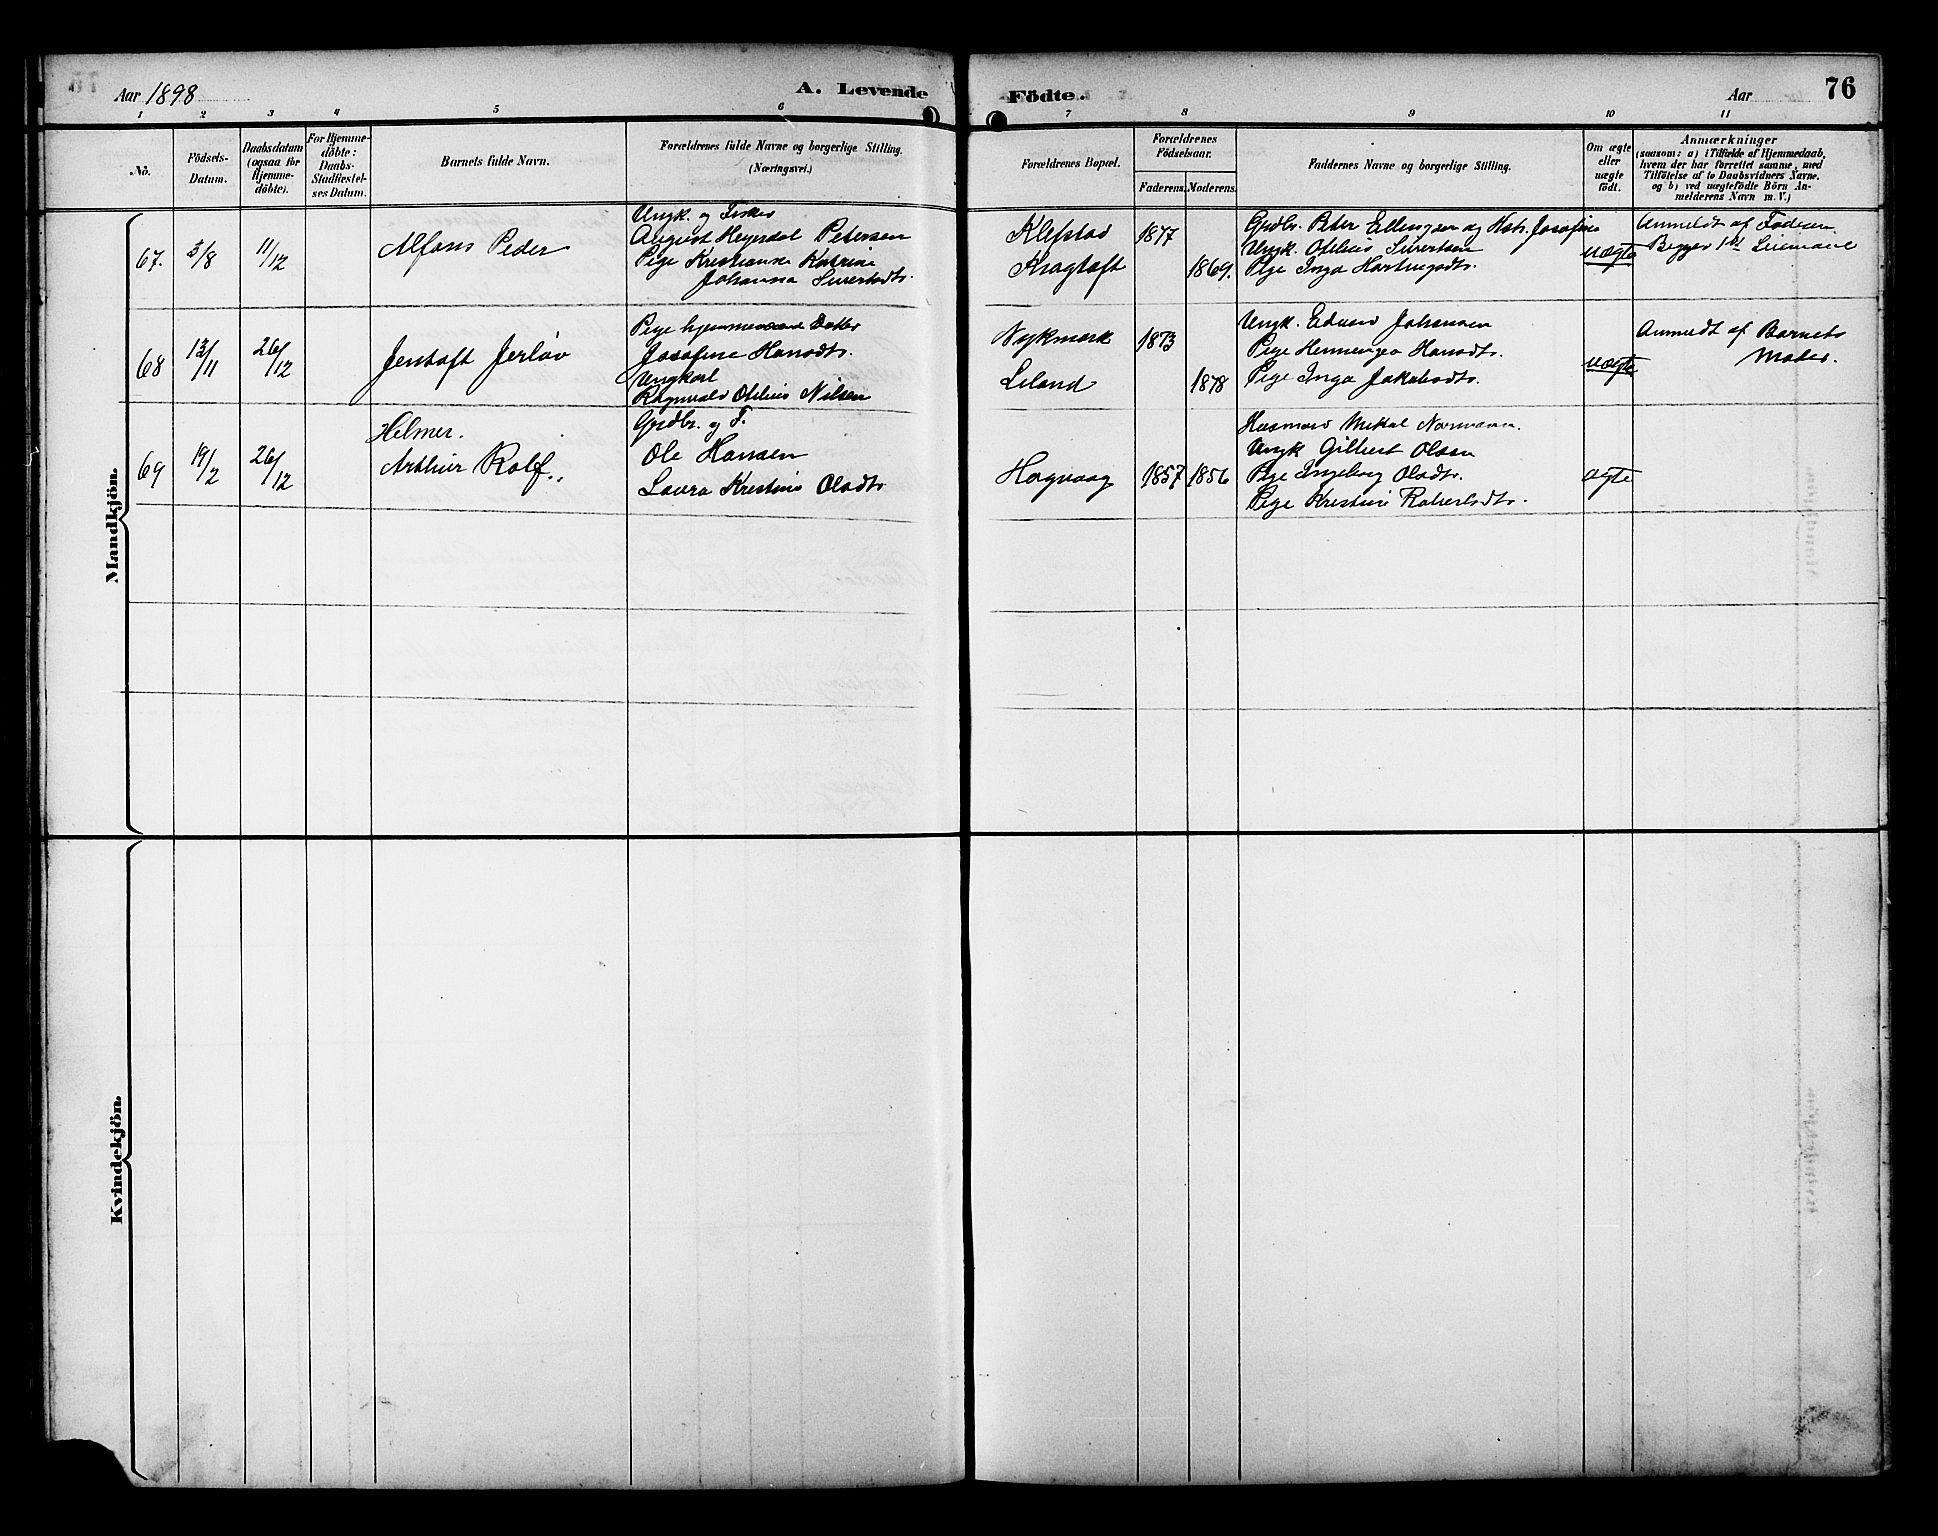 Aar 1898
A. Levende
Födte.
Aar
76
1 2 3 4 5 6 7 8 9 10 11
No.
Födsels-
Datum.
Daabsdatum
(ogsaa for
Hjemme-
döbte).
For Hjemme-
döbte:
Daabs-
Stadfæstel-
ses Datum.
Barnets fulde Navn.
Forældrenes fulde Navne og borgerlige Stilling.
(Næringsvei.)
Forældrenes Bopæl.
Forældrenes
Födselsaar.
Faderens. Moderens.
Faddernes Navne og borgerlige Stilling.
Om ægte
eller
uægte
födt.
Anmærkninger
(saasom: a) i Tilfælde af Hjemmedaab,
hvem der har forrettet samme, med
Tilföielse af to Daabsvidners Navne.
og b) ved uægtefödte Börn An-
melderens Navn m. V.)
Mandkjön.
67. 3/8 11/12
Alfons Peder
Ungk. og Fisker
August Heyerdal Petersen
Pige Kristianna Katrine
Johanna Sivertsdtr.
Klefstad 1877
Kragtoft 1869.
Grdbr. Peter Ellingsen og Hstr. Josefine
Ungk. Otelius Sivertsen
Pige Inga Hartvigsdtr.
uægte
Anmeldt af Faderen
Begges 1ste Leiermaal
68 13/11 26/12
Jentoft Jerløv
Pige hjemmeværende Datter
Josefine Hansdtr.
Ungkarl
Ragnvald Otelius Nilsen
Nykmark 1873
Leland 1878
Ungk. Edvard Johansen
Pige Henninga Hansdtr.
Pige Inga Jakobsdtr.
uægte
Anmeldt af Barnets
Moder.
69 19/2 26/12
Helmer.
Arthur Rolf.
Grdbr. og F.
Ole Hansen
Laura Kristine Olsdtr
Hagvaag 1857 1856
Husmand Mikal Normann.
Ungk Gilbert Olsen
Pige Ingeborg Olsdtr.
Pige Kristine Robertsdtr.
ægte
Kvindekjön.